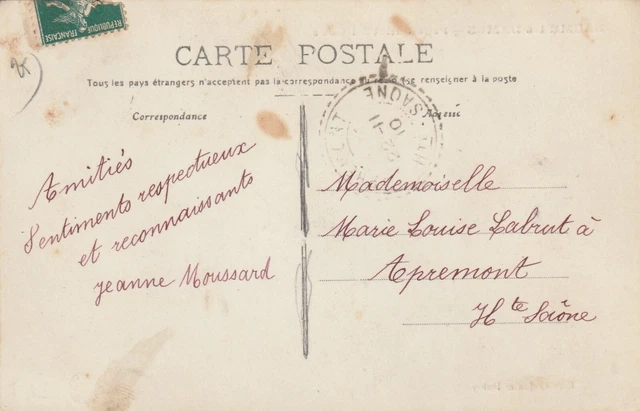 REPUBLIQUE FRANCAISE
CARTE POSTALE
Tous les pays étrangers n'acceptent pas la correspondance au se renseigner à la poste
Correspondance
Adresse
Amitiés
Sentiments respectueux
et reconnaissants
Jeanne Moussard
Mademoiselle
Marie Louise Labrut à
Apremont
Hte Saône
SAONE
10